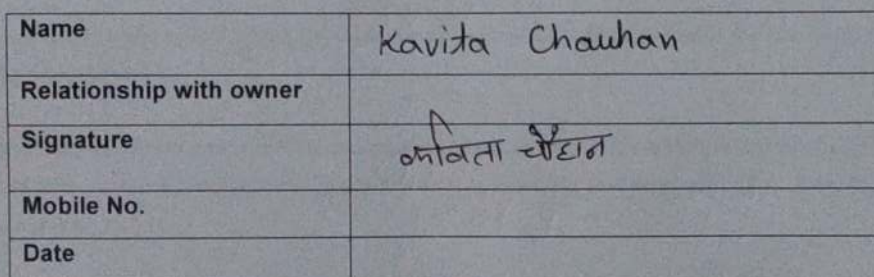 Name Kavita Chauhan
Relationship with owner
Signature कविता चौहान
Mobile No.
Date